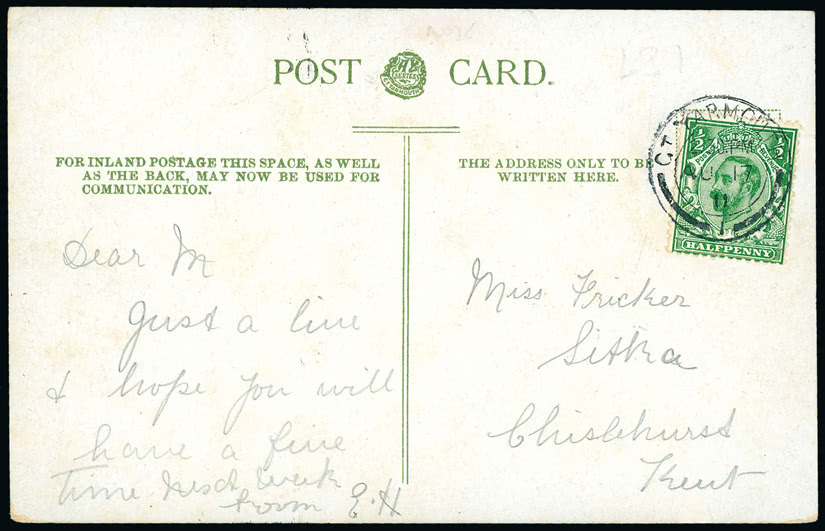 POST CARD.
FOR INLAND POSTAGE THIS SPACE, AS WELL
AS THE BACK, MAY NOW BE USED FOR
COMMUNICATION.
THE ADDRESS ONLY TO BE
WRITTEN HERE.
GT YARMOUTH
17
11
½ ½
HALFPENNY
Dear M
Just a line
& hope you will
have a fine
time next week
from E.H
Miss Fricker
Sitka
Chislehurst
Kent